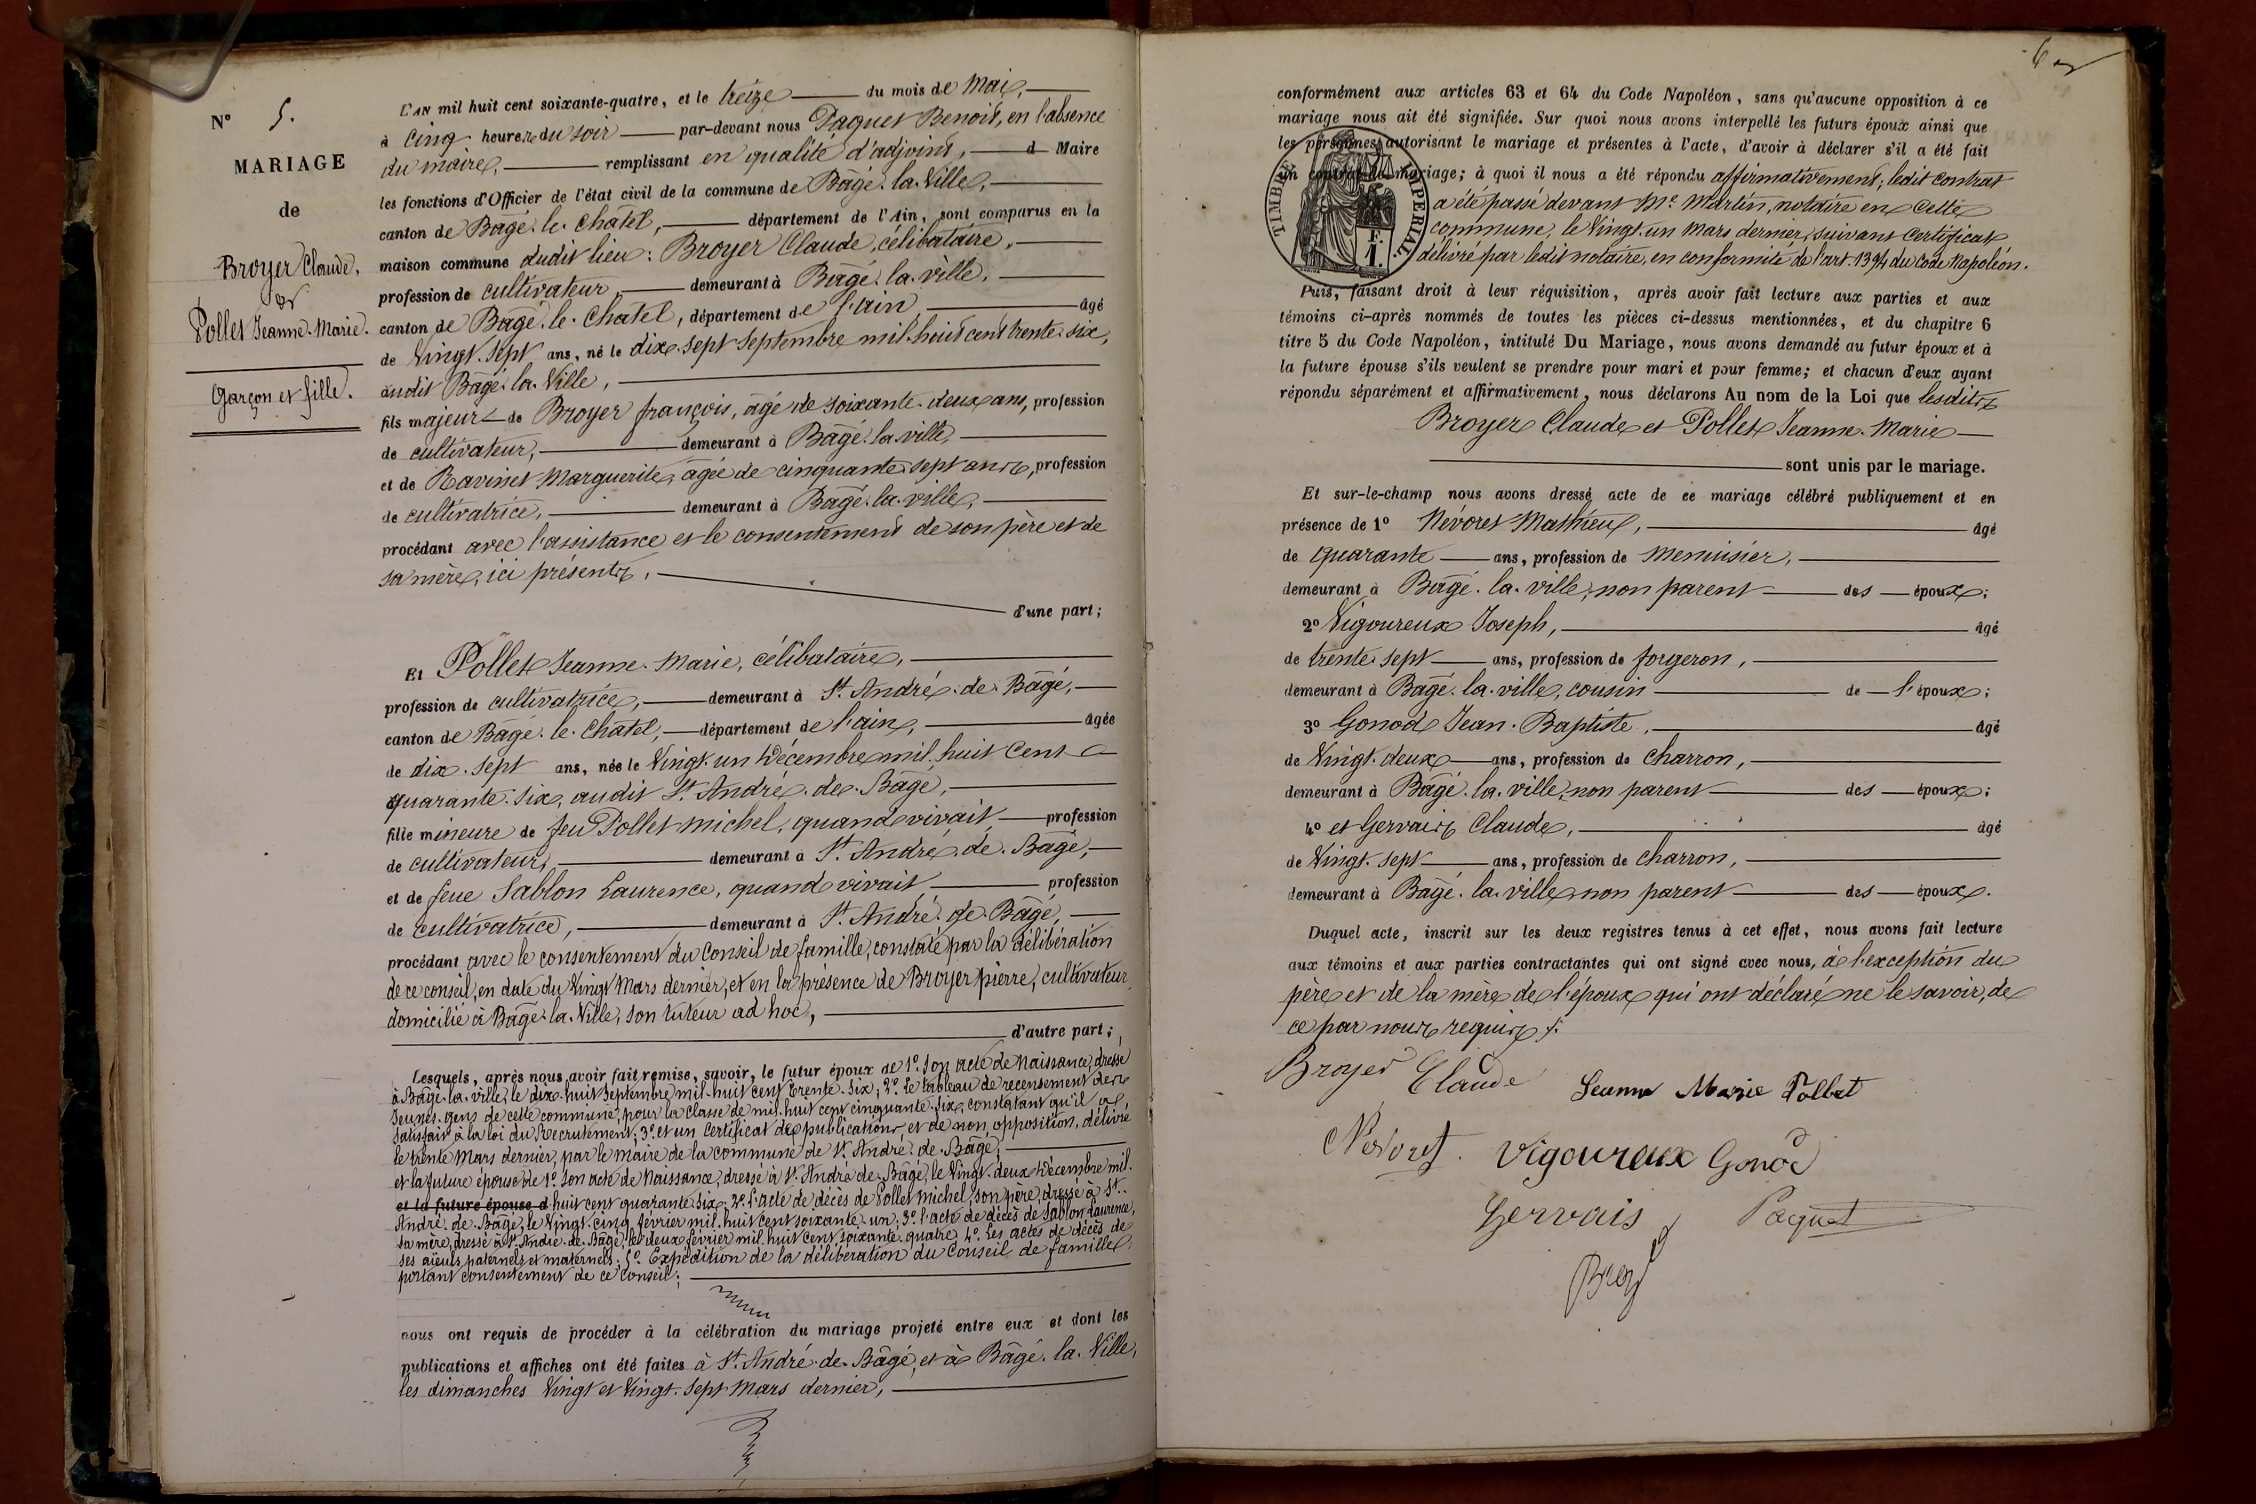 N° 5.
MARIAGE
de
Broyer Claude,
et
Pollet Jeanne-Marie.
Garçon et fille.
L'AN mil huit cent soixante-quatre, et le treize du mois de Mai,
à cinq heures du soir par-devant nous Paquet Benoit, en l'absence
du maire, remplissant en qualité d'adjoint, d Maire
les fonctions d'Officier de l'état civil de la commune de Bâgé-la-Ville,
canton de Bâgé-le-Châtel, département de l'Ain, sont comparus en la
maison commune dudit lieu : Broyer Claude, célibataire,
profession de cultivateur, demeurant à Bâgé-la-ville,
canton de Bâgé-le-Châtel, département de l'ain, âgé
de Vingt-sept ans, né le dix-sept Septembre mil-huit cent trente-six,
audit Bâgé-la-Ville,
fils majeur de Broyer françois, âgé de soixante-deux ans, profession
de cultivateur, demeurant à Bâgé-la-ville
et de Ravinet Marguerite, âgée de cinquante-sept ans, profession
de cultivatrice, demeurant à Bâgé-la-ville,
procédant avec l'assistance et le consentement de son père et de
sa mère, ici présents,
d'une part;
Et Pollet Jeanne-Marie, célibataire,
profession de cultivatrice, demeurant à St. André-de-Bâgé,
canton de Bâgé-le-Châtel, département de l'ain, âgée
de dix-sept ans, née le Vingt-un Décembre mil-huit Cent
quarante-six, audit St. André-de-Bâgé,
fille mineure de feu Pollet michel, quand vivait profession
de cultivateur, demeurant à St. André-de-Bâgé,
et de feue Sablon Laurence, quand vivait profession
de cultivatrice, demeurant à St. André-de-Bâgé,
procédant avec le consentement du Conseil de famille, constaté par la délibération
de ce conseil, en date du Vingt Mars dernier, et en la présence de Broyer pierre, cultivateur
domicilié à Bâgé-la-Ville, son tuteur ad hoc,
d'autre part;
Lesquels, après nous avoir fait remise, savoir, le futur époux de 1° Son acte de Naissance, dressé
à Bâgé-la-ville, le dix-huit Septembre mil-huit cent trente-six; 2° Le tableau de recensement des
Jeunes-gens de cette commune, pour la classe de mil-huit cent cinquante-six, constatant qu'il a
satisfait à la loi du Recrutement; 3° et un certificat de publications et de non opposition, délivré
le trente Mars dernier, par le maire de la commune de St. André-de-Bâgé;
et la future épouse de 1° Son acte de Naissance, dressé à St. André-de-Bâgé, le Vingt-deux Décembre mil-
et la future épouse d huit cent quarante-six; 2° l'acte de décès de Pollet Michel, son père, dressé à St.
André-de-Bâgé, le Vingt-cinq février mil-huit cent soixante-un; 3° l'acte de décès de Sablon Laurence,
sa mère, dressé à St. André-de-Bâgé, le deux février mil-huit cent soixante-quatre; 4° Les actes de décès de
ses aïeuls paternels et maternels; 5° Expédition de la délibération du Conseil de famille,
portant consentement de ce conseil;
nous ont requis de procéder à la célébration du mariage projeté entre eux et dont les
publications et affiches ont été faites à St. André-de-Bâgé, et à Bâgé-la-Ville,
les dimanches Vingt et Vingt-sept Mars dernier,
6
conformément aux articles 63 et 64 du Code Napoléon, sans qu'aucune opposition à ce
mariage nous ait été signifiée. Sur quoi nous avons interpellé les futurs époux ainsi que
les personnes autorisant le mariage et présentes à l'acte, d'avoir à déclarer s'il a été fait
un contrat de mariage; à quoi il nous a été répondu affirmativement; ledit contrat
a été passé devant Me. Martin, notaire en Cette
commune, le Vingt-un Mars dernier, suivant Certificat
délivré par ledit notaire, en conformité de l'art. 1394 du Code Napoléon.
TIMBRE IMPERIAL.
F.
1.
Puis, faisant droit à leur réquisition, après avoir fait lecture aux parties et aux
témoins ci-après nommés de toutes les pièces ci-dessus mentionnées, et du chapitre 6
titre 5 du Code Napoléon, intitulé Du Mariage, nous avons demandé au futur époux et à
la future épouse s'ils veulent se prendre pour mari et pour femme; et chacun d'eux ayant
répondu séparément et affirmativement, nous déclarons Au nom de la Loi que lesdits
Broyer Claude et Pollet Jeanne-Marie
sont unis par le mariage.
Et sur-le-champ nous avons dressé acte de ce mariage célébré publiquement et en
présence de 1° Névoret Mathieu, âgé
de quarante ans, profession de menuisier,
demeurant à Bâgé-la-ville, non parent des époux;
2° Vigoureux Joseph, âgé
de trente-sept ans, profession de forgeron,
demeurant à Bâgé-la-ville, cousin de l'époux;
3° Gonod Jean-Baptiste, âgé
de Vingt-deux ans, profession de charron,
demeurant à Bâgé-la-ville, non parent des époux;
4° et Gervais Claude, âgé
de Vingt-sept ans, profession de charron,
demeurant à Bâgé-la-ville, non parent des époux.
Duquel acte, inscrit sur les deux registres tenus à cet effet, nous avons fait lecture
aux témoins et aux parties contractantes qui ont signé avec nous, à l'exception du
père et de la mère de l'époux qui ont déclaré ne le savoir, de
ce par nous requis ./.
Broyer Claude Jeanne Marie Pollet
Nevoret. Vigoureux Gonod
Gervais Paquet
Broy